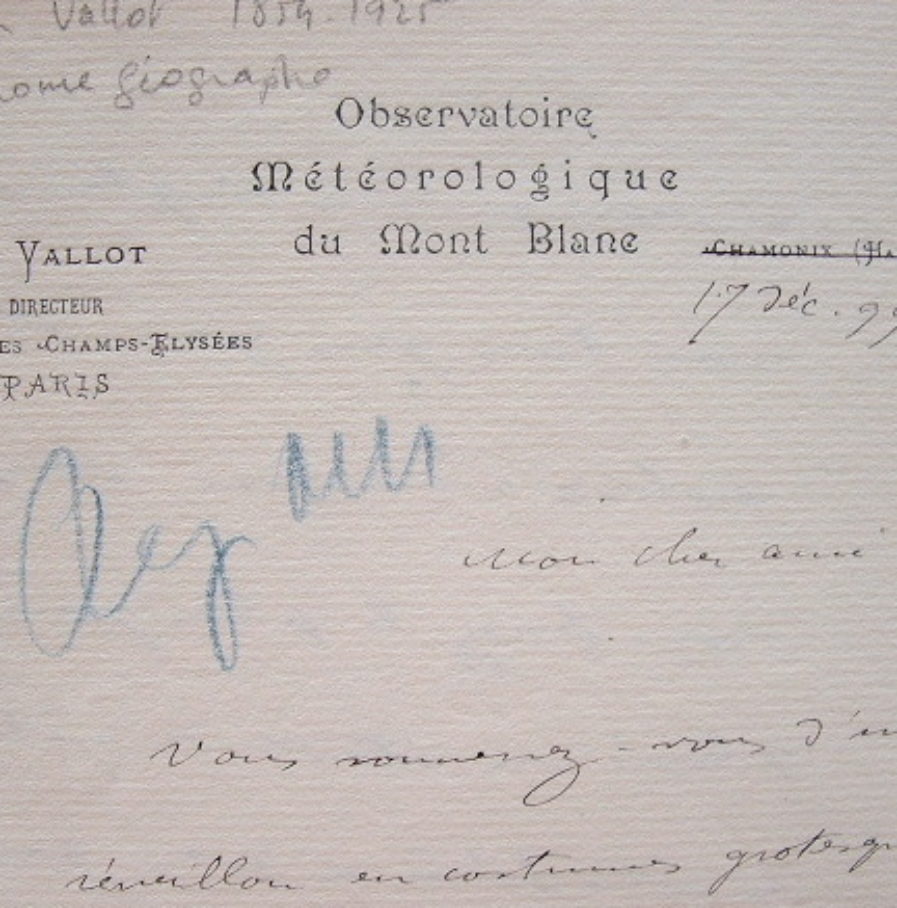 Vallot 1854-1925
géographe
Observatoire
Météorologique
du Mont Blanc
VALLOT
DIRECTEUR
ES CHAMPS-ELYSÉES
PARIS
CHAMONIX (HA
17 Déc. 99
Mon cher ami
Vous souvenez-vous d'un
réveillon en costumes grotesqu